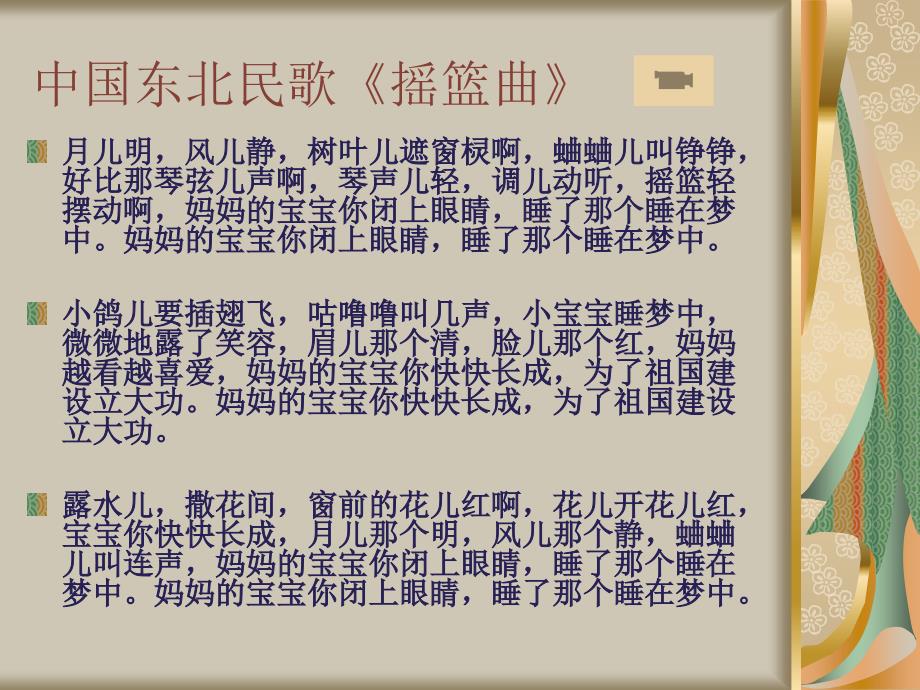 中国东北民歌《摇篮曲》
月儿明，风儿静，树叶儿遮窗棂啊，蛐蛐儿叫铮铮，
好比那琴弦儿声啊，琴声儿轻，调儿动听，摇篮轻
摆动啊，妈妈的宝宝你闭上眼睛，睡了那个睡在梦
中。妈妈的宝宝你闭上眼睛，睡了那个睡在梦中。
小鸽儿要插翅飞，咕噜噜叫几声，小宝宝睡梦中，
微微地露了笑容，眉儿那个清，脸儿那个红，妈妈
越看越喜爱，妈妈的宝宝你快快长成，为了祖国建
设立大功。妈妈的宝宝你快快长成，为了祖国建设
立大功。
露水儿，撒花间，窗前的花儿红啊，花儿开花儿红，
宝宝你快快长成，月儿那个明，风儿那个静，蛐蛐
儿叫连声，妈妈的宝宝你闭上眼睛，睡了那个睡在
梦中。妈妈的宝宝你闭上眼睛，睡了那个睡在梦中。